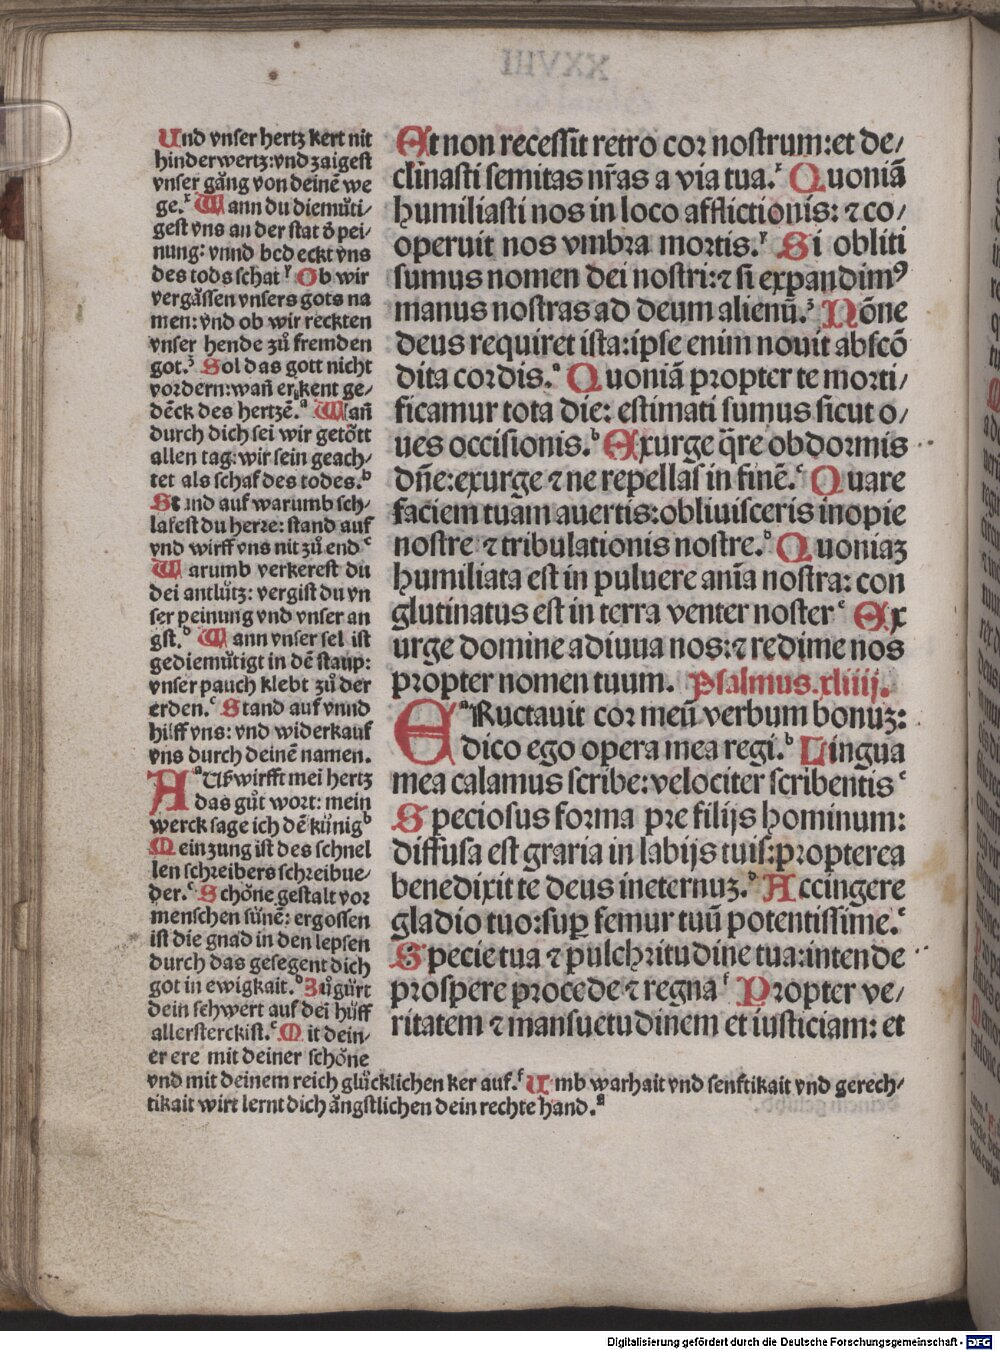 Und vnſer hertz kert nit
hinderwertz: vnd zaigeſt
vnſer gång von deinẽ we
ge.ˣ Wann du diemůti⸗
geſt vns an der ſtat õ pei⸗
nung: vnnd bedeckt vns
des tods ſchat ʸ Ob wir
vergåſſen vnſers gots na
men: vnd ob wir reckten
vnſer hende zů fremden
got.ᶻ Sol das gott nicht
vordern: wañ erkent ge⸗
dẽck des hertzẽ.ᵃ Wañ
durch dich ſei wir getõtt
allen tag: wir ſein geach⸗
tet als ſchaf des todes.ᵇ
Stand auf warumb ſch⸗
lafeſt du herre: ſtand auf
vnd wirff vns nit zů end ᶜ
Warumb verkereſt du
dei antlůtz: vergiſt du vn
ſer peinung vnd vnſer an
gſt.ᵈ Wann vnſer ſel iſt
gediemůtigt in dẽ ſtaup:
vnſer pauch klebt zů der
erden.ᵉ Stand auf vnnd
hilff vns: vnd widerkauf
vns durch deinẽ namen.
Aᵃ Uß wirfft mei hertz
das gůt wort: mein
werck ſage ich dẽ kůnig ᵇ
Mein zung iſt des ſchnel
len ſchreibers ſchreibue⸗
der.ᶜ Schõne geſtalt vor
menſchen ſůnẽ: ergoſſen
iſt die gnad in den lepſen
durch das geſegent dich
got in ewigkait.ᵈ Zůgürt
dein ſchwert auf dei hüff
allerſterckiſt.ᵉ Mit dein⸗
er ere mit deiner ſchõne
vnd mit deinem reich glůcklichen ker auf.ᶠ Umb warhait vnd ſenftikait vnd gerech⸗
tikait wirt lernt dich ångſtlichen dein rechte hand.ᵍ
XXVIII
Et non receſſit retro cor noſtrum: et de⸗
clinaſti ſemitas nr̃as a via tua.ˣ Quoniã
humiliaſti nos in loco afflictionis: ⁊ co⸗
operuit nos vmbra mortis.ʸ Si obliti
ſumus nomen dei noſtri: ⁊ ſi expandimꝰ
manus noſtras ad deum alienũ.ᶻ Nõne
deus requiret iſta: ipſe enim nouit abſcõ
dita cordis.ᵃ Quoniã propter te morti⸗
ficamur tota die: eſtimati ſumus ſicut o⸗
ues occiſionis.ᵇ Exurge q̃re obdormis
dñe: exurge ⁊ ne repellas in finẽ.ᶜ Quare
faciem tuam auertis: obliuiſceris inopie
noſtre ⁊ tribulationis noſtre.ᵈ Quoniaꝫ
humiliata eſt in puluere anĩa noſtra: con
glutinatus eſt in terra venter noſter ᵉ Ex
urge domine adiuua nos: ⁊ redime nos
propter nomen tuum. Pſalmus.xliiij.
Eᵃ Ructauit cor meũ verbum bonuꝫ:
dico ego opera mea regi.ᵇ Lingua
mea calamus ſcribe: velociter ſcribentis ᶜ
Specioſus forma pre filijs hominum:
diffuſa eſt graria in labijs tuis: propterea
benedixit te deus in eternuꝫ.ᵈ Accingere
gladio tuo: suꝑ femur tuũ potentiſſime.ᵉ
Specie tua ⁊ pulchritudine tua: intende
proſpere procede ⁊ regna ᶠ Propter ve⸗
ritatem ⁊ manſuetudinem et iuſticiam: et
Digitalisierung gefördert durch die Deutsche Forschungsgemeinschaft - DFG